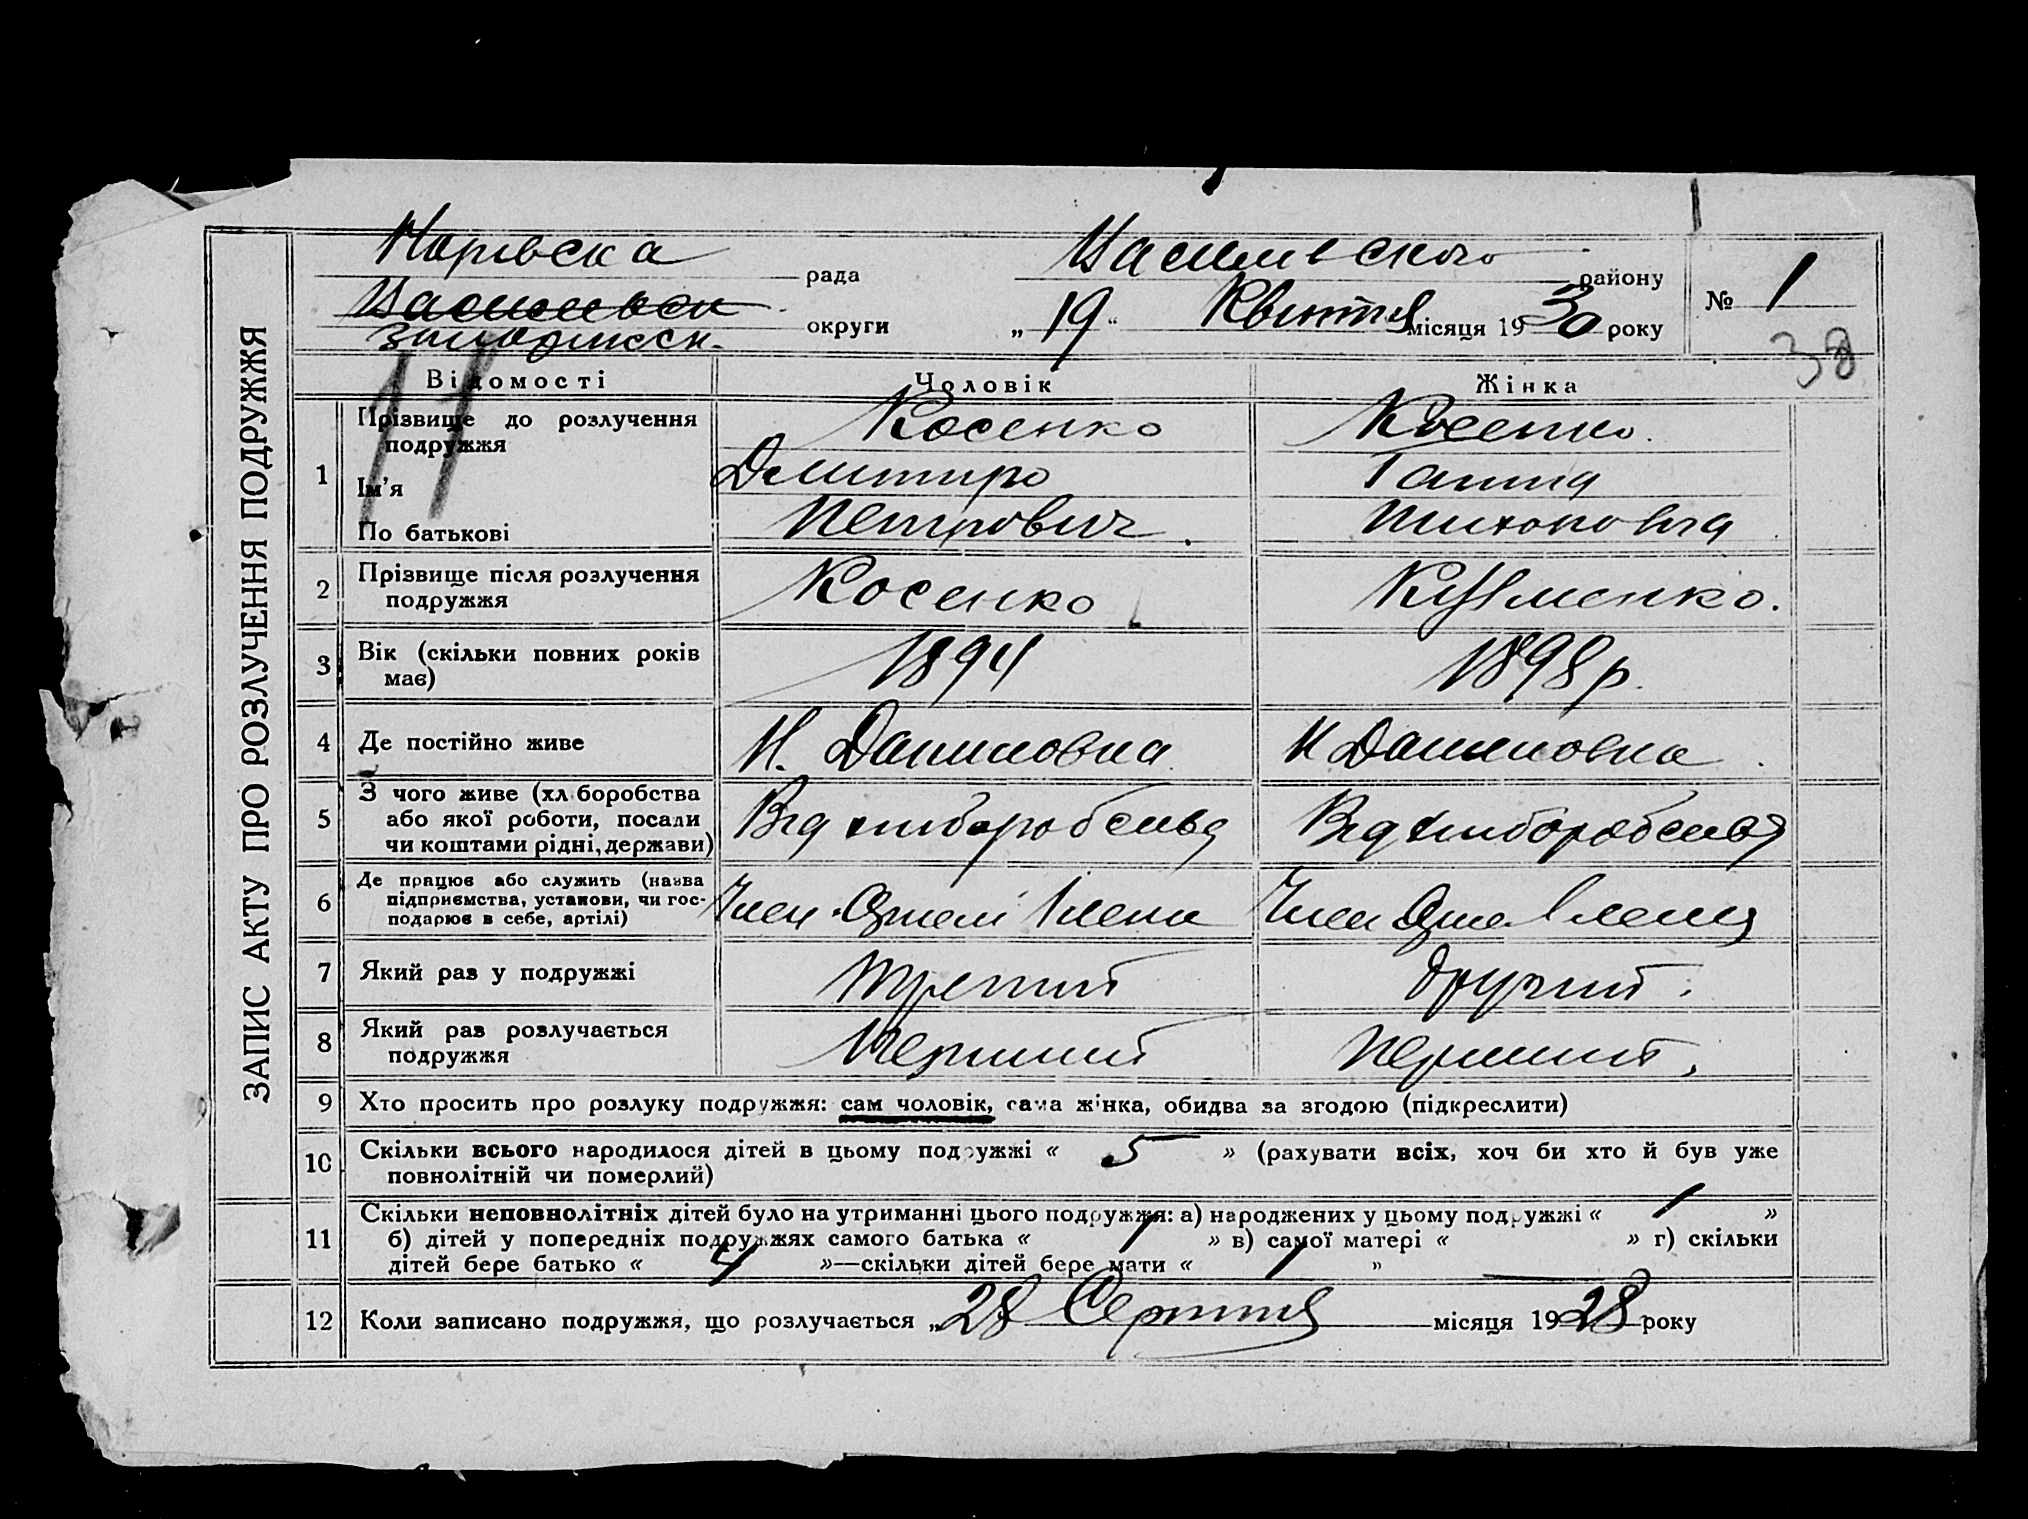 ЗАПИС АКТУ ПРО РОЗЛУЧЕННЯ ПОДРУЖЖЯ
рада району № 1
округи „19“ Квітня місяця 1930 року
38
Відомості Чоловік Жінка
1 Прізвище до розлучення подружжя Косенко Косенко
Ім'я Дмитро Ганна
По батькові Петрович Тихоновна
2 Прізвище після розлучення Косенко
подружжя
3 Вік (скільки повних років 1894 1898 р.
має)
4 Де постійно живе Н. Даниловка Н Даниловка
5 З чого живе (хліборобства
або якої роботи, посади Від хліборобства Від хліборобства
чи коштами рідні, держави)
6 Де працює або служить (назва
підприємства, установи, чи гос- Член Член
подарює в себе, артілі)
7 Який раз у подружжі третій другий
8 Який раз розлучається Перший Перший
подружжя
9 Хто просить про розлуку подружжя: сам чоловік, сама жінка, обидва за згодою (підкреслити)
10 Скільки всього народилося дітей в цьому подружжі « 5 » (рахувати всіх, хоч би хто й був уже
повнолітній чи померлий)
11 Скільки неповнолітніх дітей було на утриманні цього подружжя: а) народжених у цьому подружжі « 1 »
б) дітей у попередніх подружжях самого батька « 1 » в) самої матері « » г) скільки
дітей бере батько « 4 »—скільки дітей бере мати « 1 »
12 Коли записано подружжя, що розлучається „28 Серпня місяця 1928 року